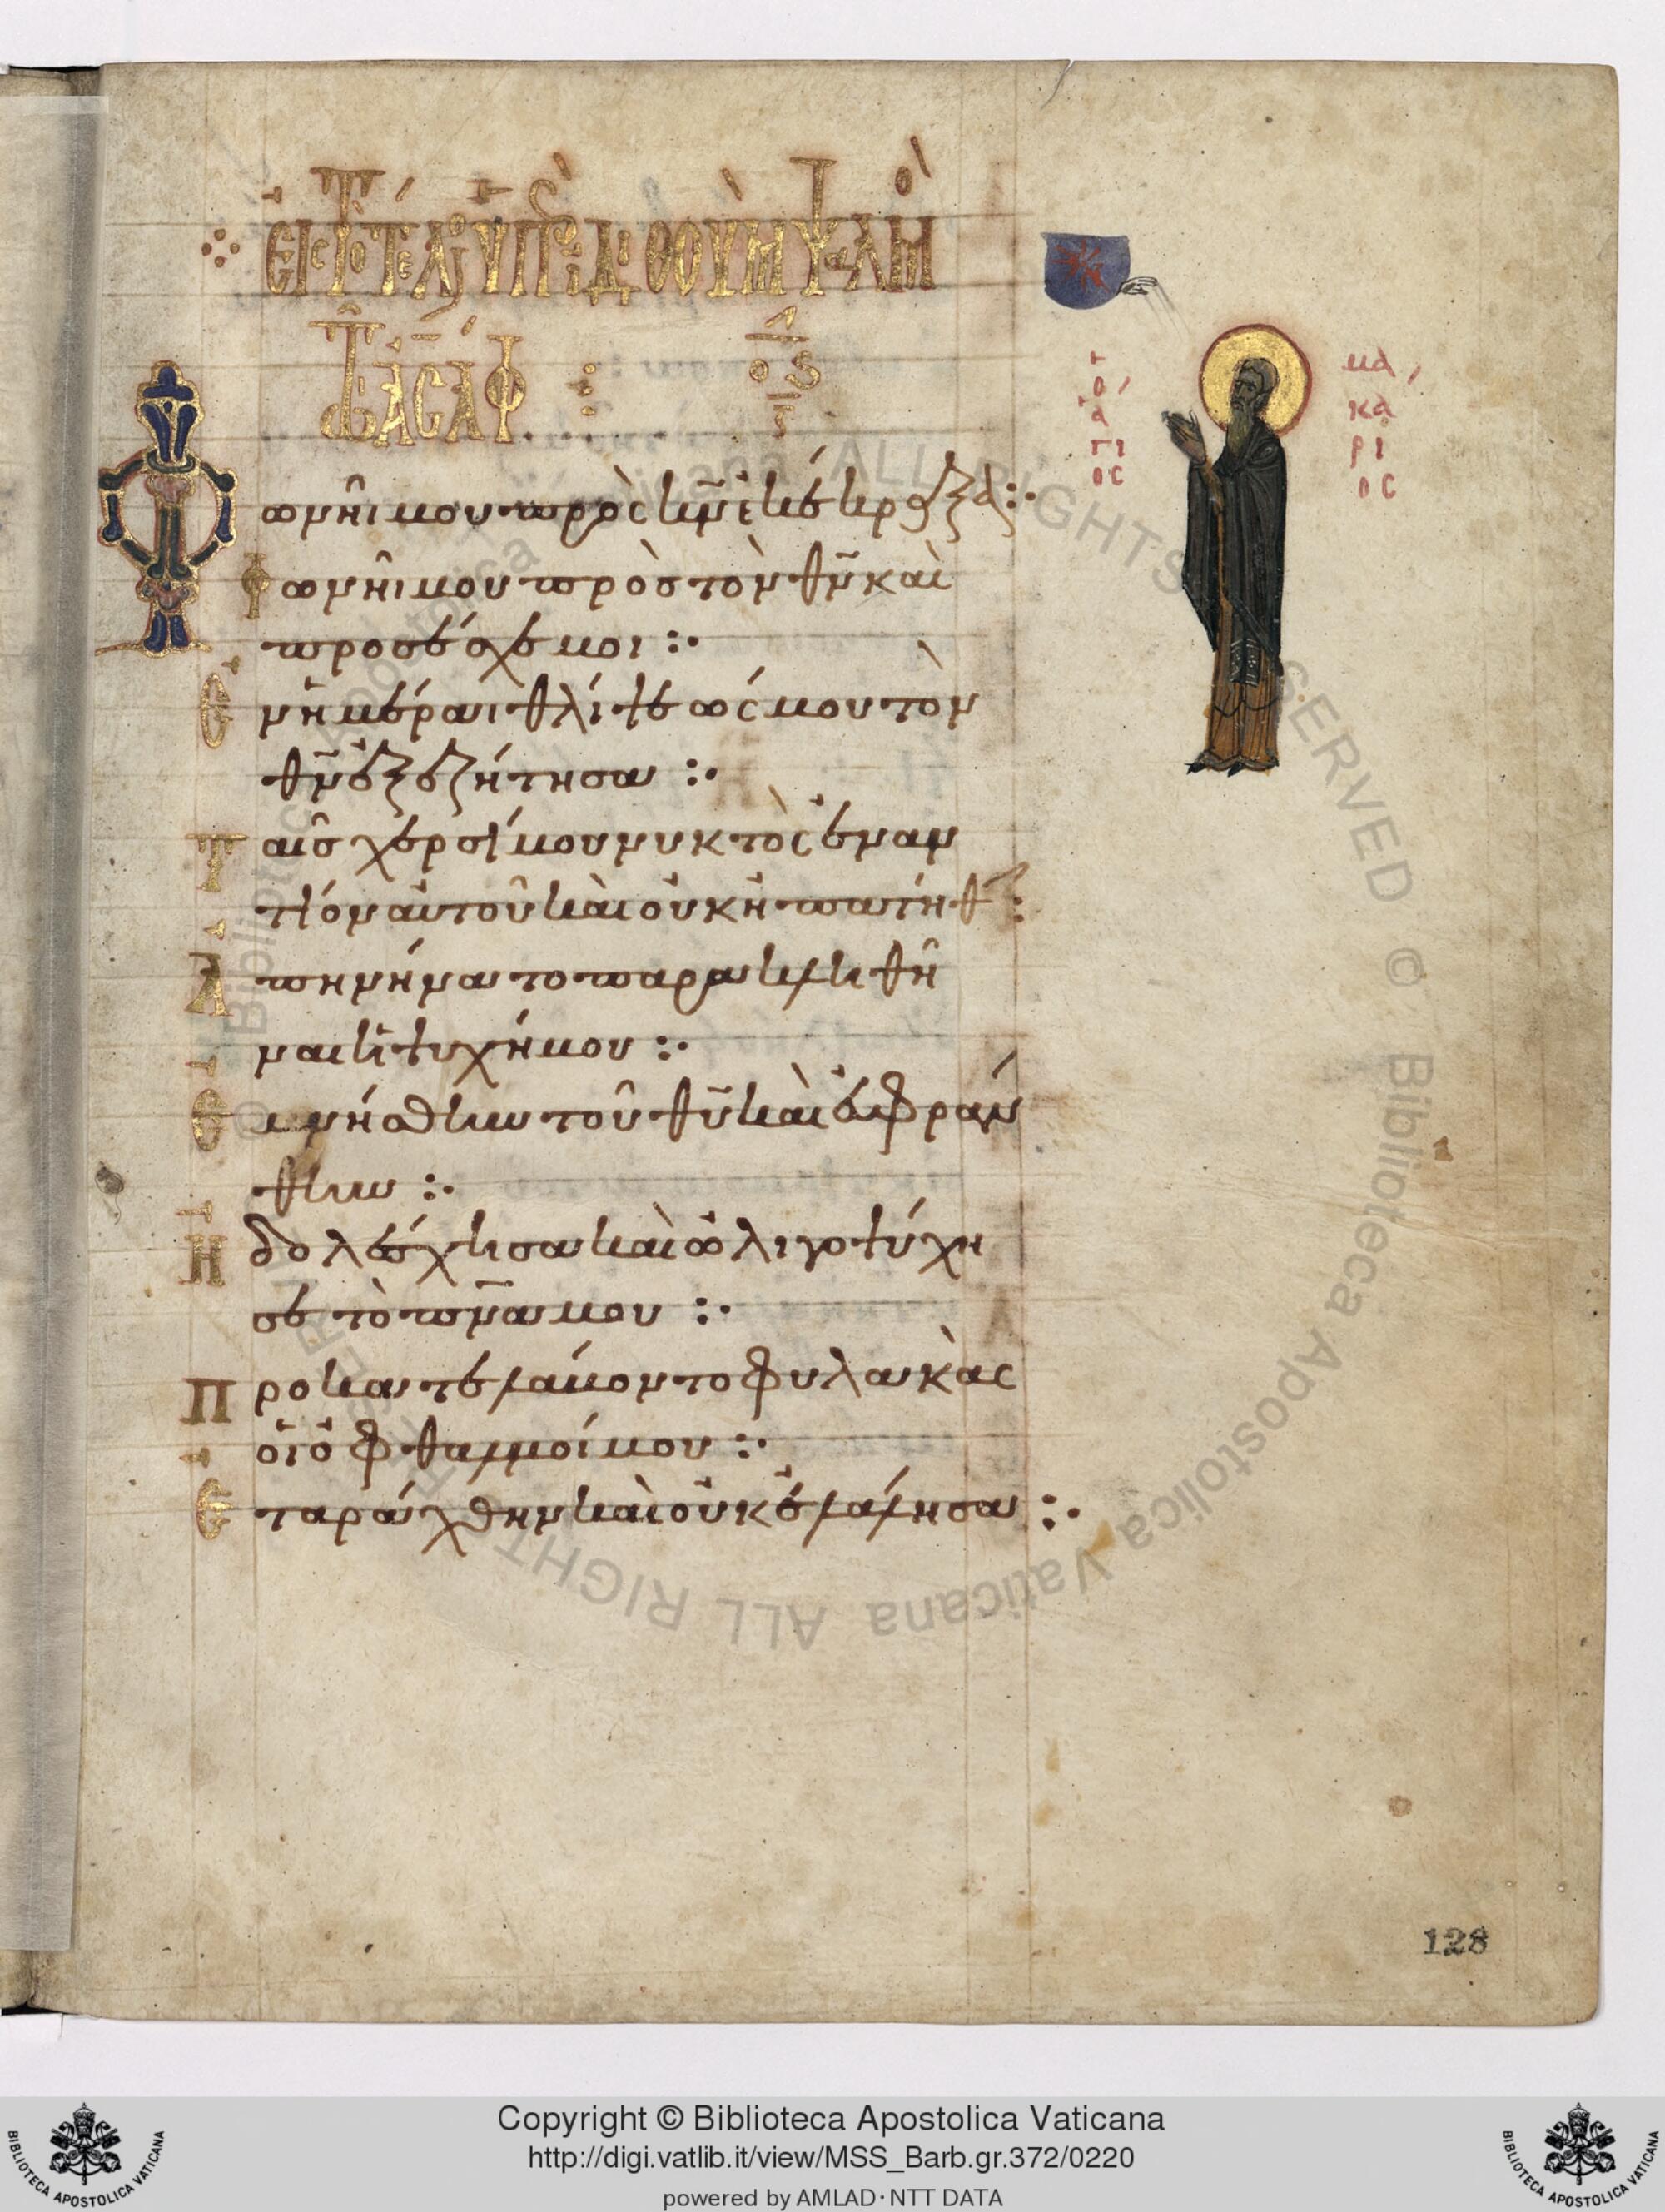 εἰς τὸ τέλος ὑπὲρ ἰδιθοὺμ ψαλμὸς
τῷ ἀσάφ : ος
Φωνῆι μου πρὸς κν̄ ἐκέκραξα :·
Φωνῆι μου πρὸς τὸν θν̄ καὶ
προσέσχε μοι :·
Ἐν ἡμέραι θλίψεώς μου τὸν
θν̄ ἐξεζήτησα :·
Ταῖς χερσί μου νυκτὸς ἐναν
τίον αὐτοῦ καὶ οὐκ ἠπατήθην :
Ἀπηνήνατο παρακληθῆ
ναι ἡ ψυχή μου :·
Ἐμνήσθην τοῦ θῡ καὶ εὐφράν
θην :·
Ἠδολέσχησα καὶ ὠλιγοψύχη
σε τὸ πν̄α μου :·
Προκατελάβοντο φυλακὰς
οἱ ὀφθαλμοί μου :·
Ἐταράχθην καὶ οὐκ ἐλάλησα :·
τ
ο
ἅ
γι
ος
μα
κά
ρι
ος
128
Copyright © Biblioteca Apostolica Vaticana
http://digi.vatlib.it/view/MSS_Barb.gr.372/0220
powered by AMLAD·NTT DATA
BIBLIOTECA APOSTOLICA VATICANA
BIBLIOTECA APOSTOLICA VATICANA